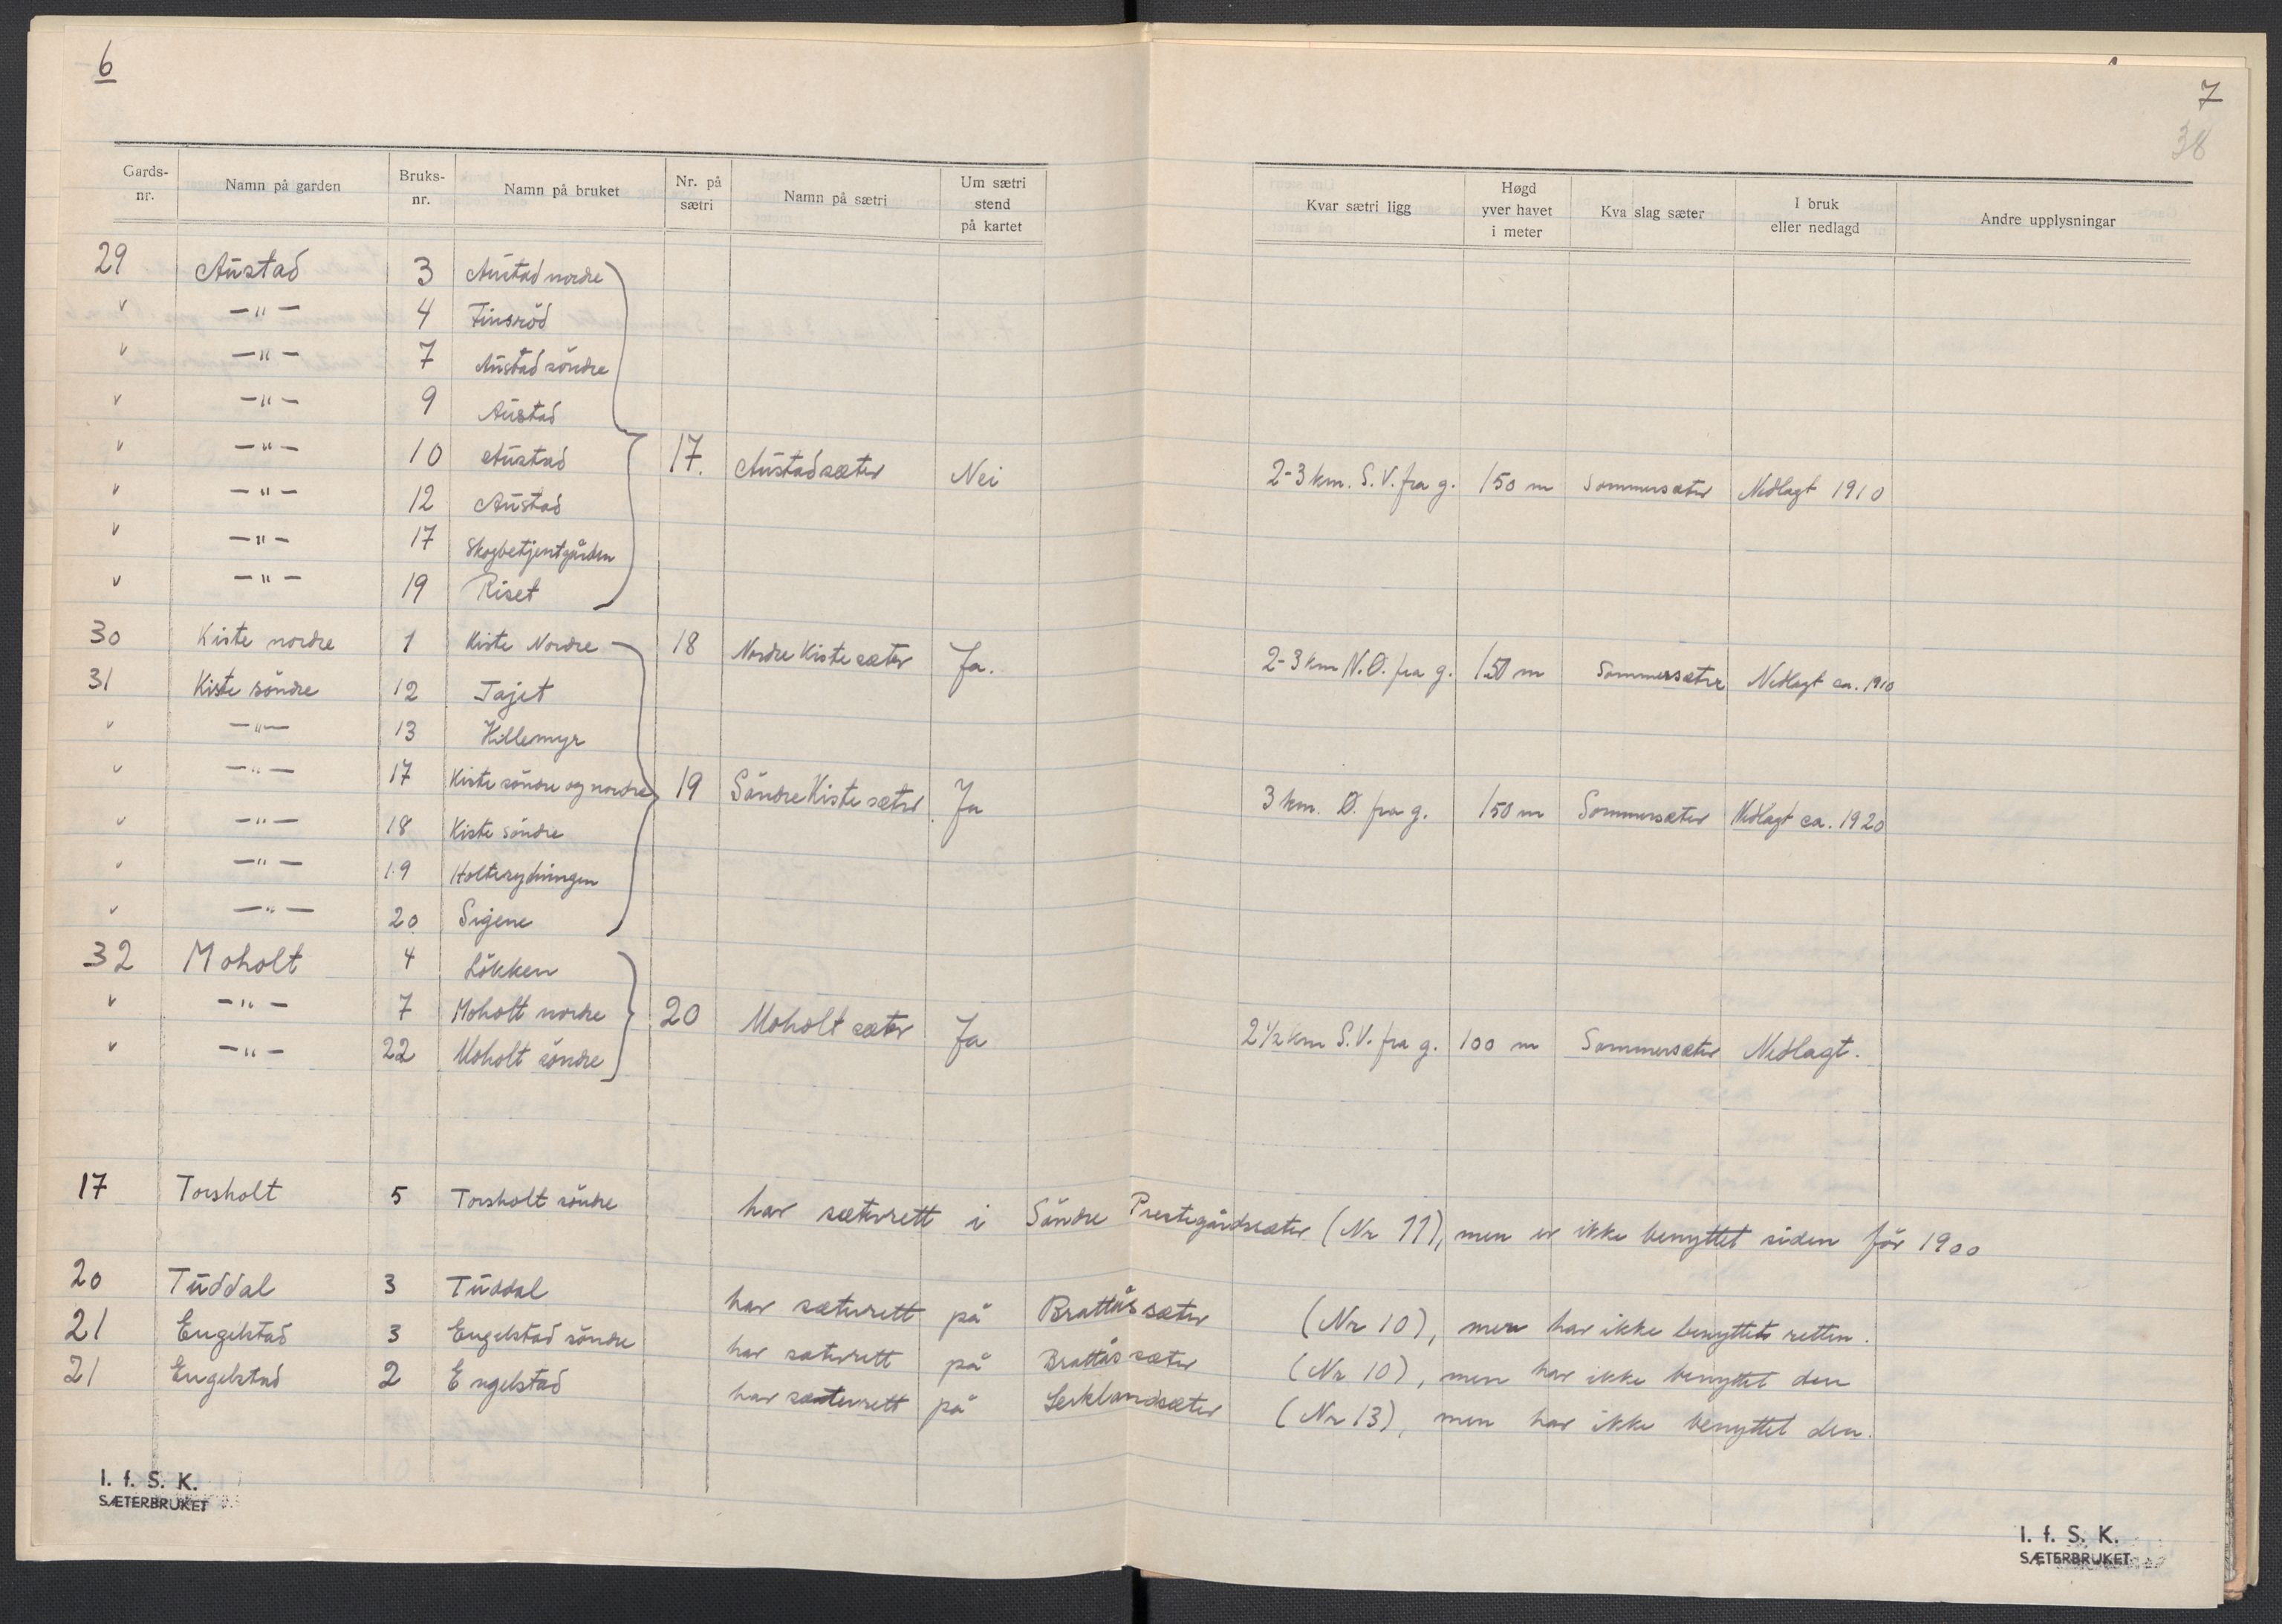 6
Gards-nr. Namn på garden Bruks-nr. Namn på bruket Nr. på sætri Namn på sætri Um sætri stend på kartet
29 Austad 3 Austad nordre
" —"— 4 Finsröd
" —"— 7 Austad söndre
" —"— 9 Austad
" —"— 10 Austad 17. Austadsæter Nei
" —"— 12 Austad
" —"— 17 Skogbetjentgården
" —"— 19 Riset
30 Kiste nordre 1 Kiste Nordre 18 Nordre Kiste sæter Ja.
31 Kiste söndre 12 Tajet
" —"— 13 Killemyr
" —"— 17 Kiste söndre og nordre 19 Söndre Kiste sæter Ja
" —"— 18 Kiste söndre
" —"— 19 Holterydningen
" —"— 20 Sigene
32 Moholt 4 Lökken
" —"— 7 Moholt nordre 20 Moholt sæter Ja
" —"— 22 Moholt söndre
17 Torsholt 5 Torsholt söndre har sæterrett i Söndre
20 Tuddal 3 Tuddal har sæterrett på Brattås sæter
21 Engelstad 3 Engelstad söndre har sæterrett på Brattås sæter
21 Engelstad 2 Engelstad har sæterrett på
I. f. S. K.
SÆTERBRUKET
7
38
Kvar sætri ligg Høgd yver havet i meter Kva slag sæter I bruk eller nedlagd Andre upplysningar
2-3 km. S.V. fra g. 150 m Sommersæter Nedlagt 1910
2-3 km N.Ö. fra g. 150 m Sommersæter Nedlagt ca. 1910
3 km. Ö. fra g. 150 m Sommersæter Nedlagt ca. 1920
2 1/2 km S.V. fra g. 100 m Sommersæter Nedlagt.
Prestegårdsæter (Nr 11), men er ikke benyttet siden för 1900
(Nr 10), men har ikke benyttet retten.
(Nr 10), men har ikke benyttet den
(Nr 13), men har ikke benyttet den.
I. f. S. K.
SÆTERBRUKET